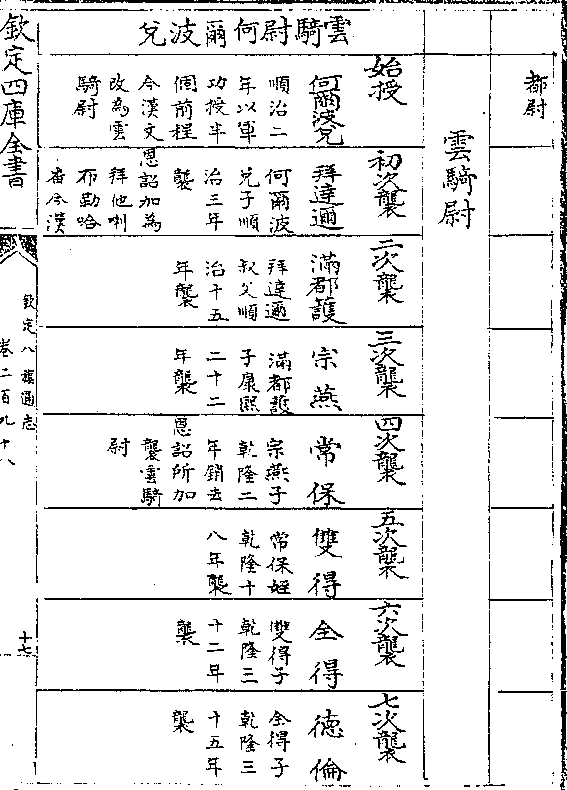 都尉
雲騎尉
雲騎尉何爾波兌
始授
何爾波兌
順治二
年以軍
功授半
個前程
今漢文
改為雲
騎尉
初次襲
拜達邇
何爾波
兌子順
治三年
襲
恩詔加為
拜他喇
布勒哈
番今漢
二次襲
滿都護
拜達邇
叔父順
治十五
年襲
三次襲
宗燕
滿都護
子康熙
二十二
年襲
四次襲
常保
宗燕子
乾隆二
年銷去
恩詔所加
襲雲騎
尉
五次襲
雙得
常保姪
乾隆十
八年襲
六次襲
全得
雙得子
乾隆三
十二年
襲
七次襲
德倫
全得子
乾隆三
十五年
襲
欽定四庫全書
欽定八旗通志
卷二百九十八
十七